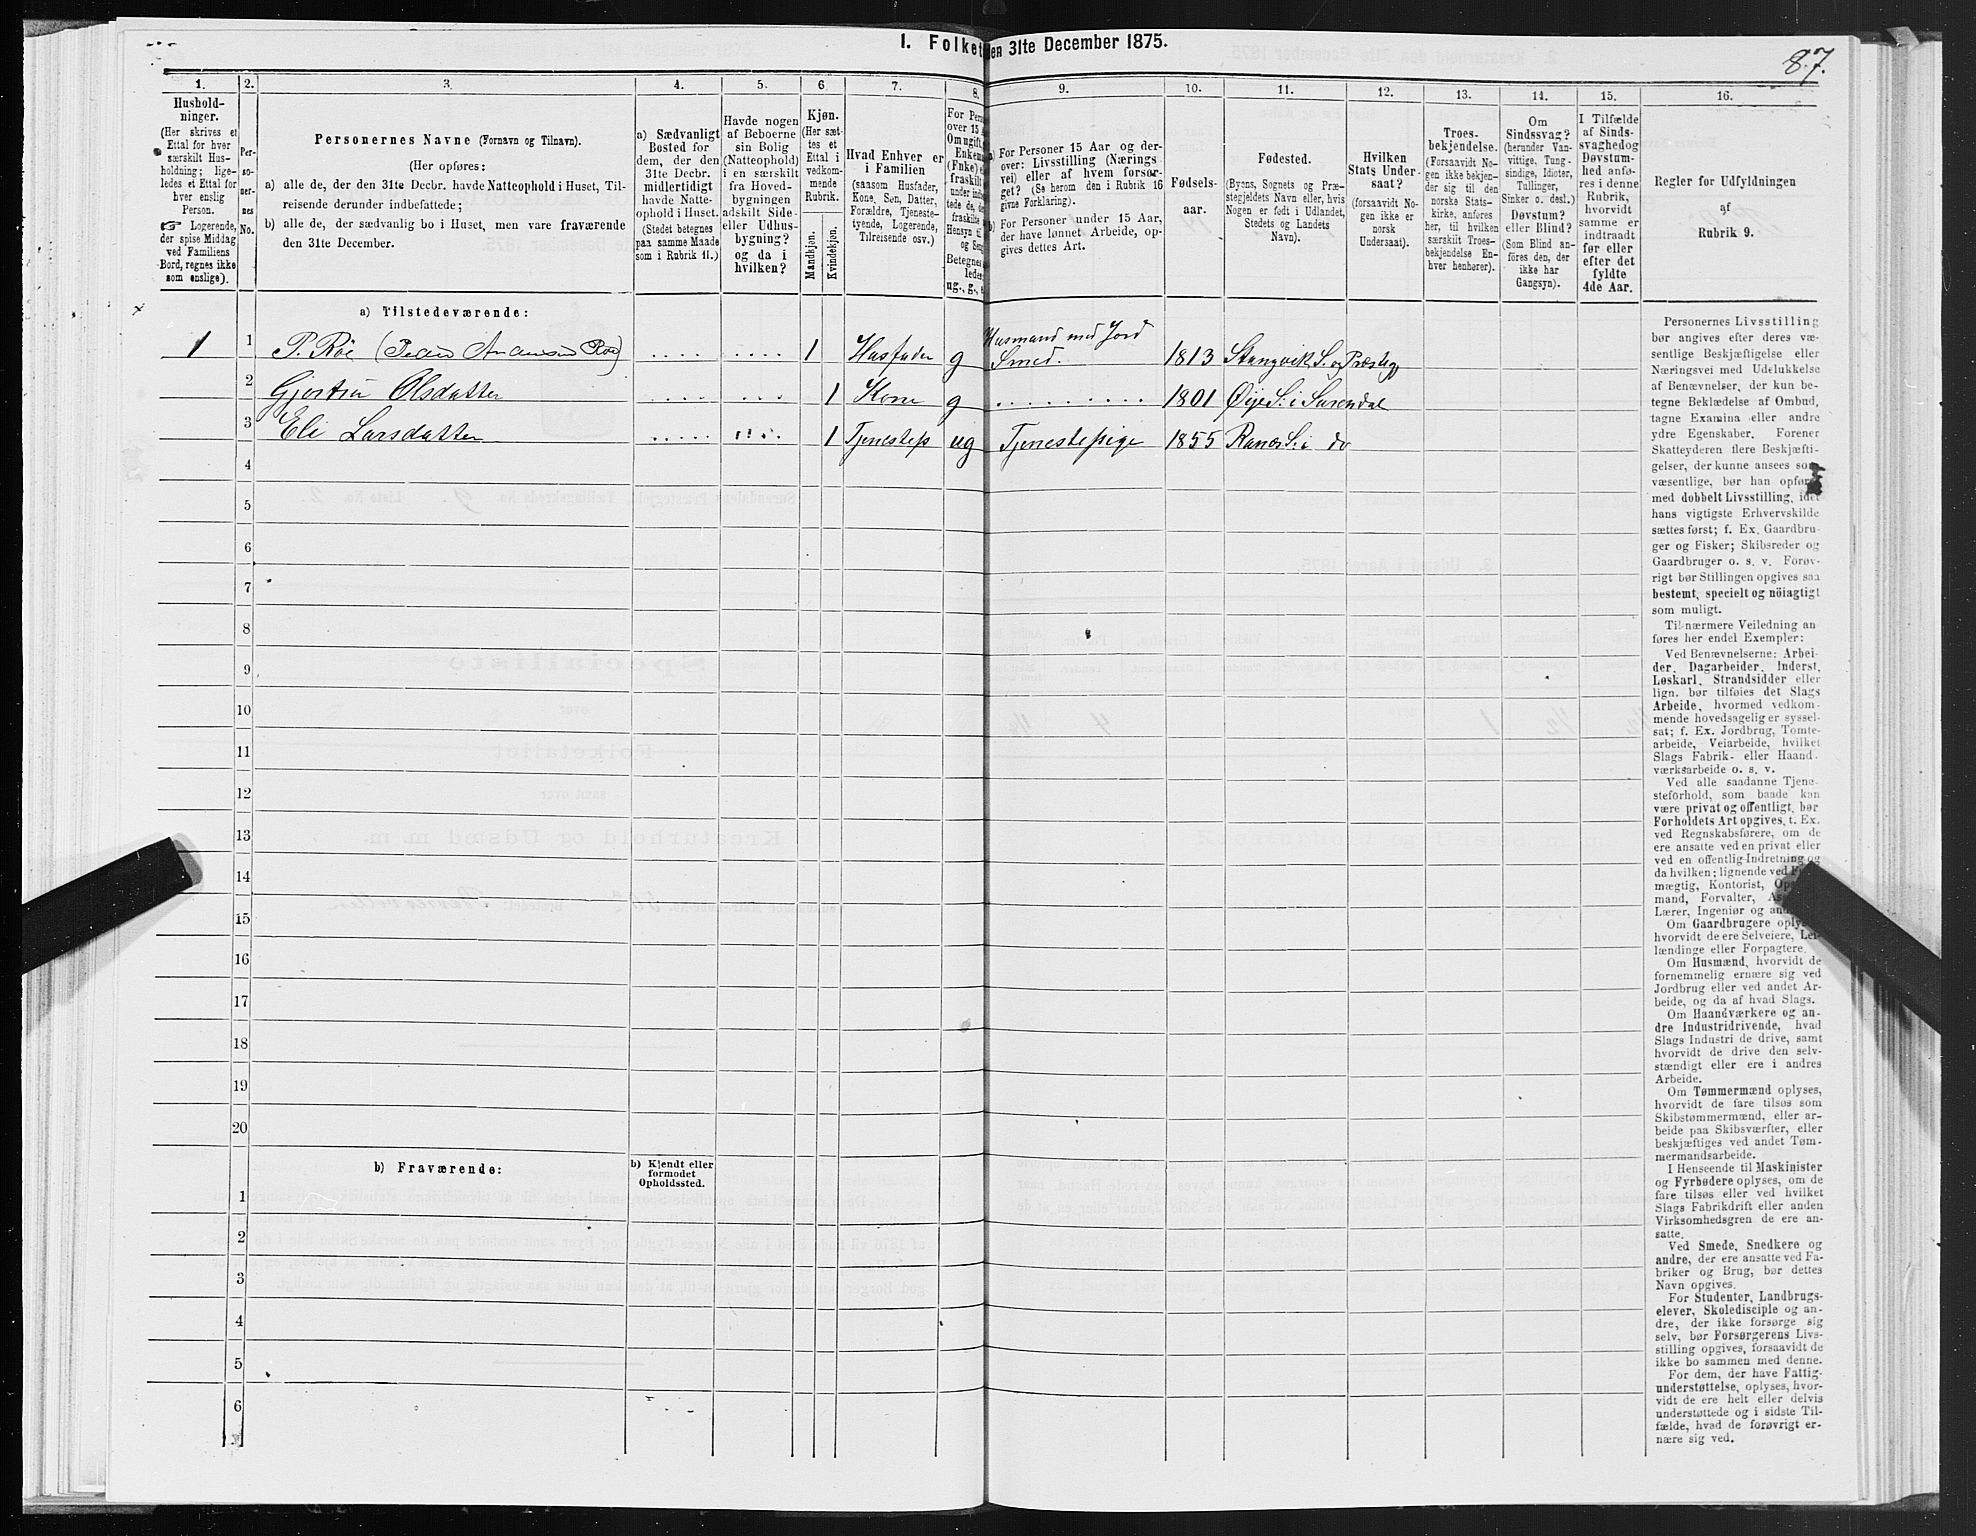 87.
1. Folket
den 31te December 1875.
1.
2.
3.
4.
5.
6
7.
8.
9.
10.
11.
12.
13.
14.
15.
16.
Hushold-
ninger.
(Her skrives et
Ettal for hver
særskilt Hus-
holdning; lige-
ledes et Ettal for
hver enslig
Person.
☞ Logerende,
der spise Middag
ved Familiens
Bord, regnes ikke
som enslige).
Per-
so-
ner-
nes
No.
Personernes Navne (Fornavn og Tilnavn).
(Her opføres:
a) alle de, der den 31te Decbr. havde Natteophold i Huset, Til-
reisende derunder indbefattede;
b) alle de, der sædvanlig bo i Huset, men vare fraværende
den 31te December.
a) Sædvanligt
Bosted for
dem, der den
31te Decbr.
midlertidigt
havde Natte-
ophold i Huset.
(Stedet betegnes
paa samme Maade
som i Rubrik 11.)
Havde nogen
af Beboerne
sin Bolig
(Natteophold)
i en særskilt
fra Hoved-
bygningen
adskilt Side-
eller Udhus-
bygning?
og da i
hvilken?
Kjøn.
(Her sæt-
tes et
Ettal i
vedkom-
mende
Rubrik.
Mandkjøn.
Kvindekjøn.
Hvad Enhver er
i Familien
(saasom Husfader,
Kone, Søn, Datter,
Forældre, Tjeneste-
tyende, Logerende,
Tilreisende osv.)
For Pers
over 15 A
Omugift,
Enkem
(Enke) e
fraskilt
ug., g., e
a) For Personer 15 Aar og der-
over: Livsstilling (Nærings
vei) eller af hvem forsør-
get? (Se herom den i Rubrik 16
givne Forklaring).
b) For Personer under 15 Aar,
der have lønnet Arbeide, op-
gives dettes Art.
Fødsels-
aar.
Fødested.
(Byens, Sognets og Præ-
stegjeldets Navn eller, hvis
Nogen er født i Udlandet,
Stedets og Landets
Navn).
Hvilken
Stats Under-
saat?
(forsaavidt No-
gen ikke er
norsk
Undersaat).
Troes-
bekjendelse.
(Forsaavidt No-
gen ikke bekjen-
der sig til den
norske Stats-
kirke, anføres
her, til hvilken
særskilt Troes-
bekjendelse En-
hver henhører).
Om
Sindssvag?
(herunder Van-
vittige, Tung-
sindige, Idioter,
Tullinger,
Sinker o. desl.)
Døvstum?
eller Blind?
(Som Blind an-
føres den, der
ikke har
Gangsyn).
I Tilfælde
af Sinds-
svaghed og
Døvstum-
hed anfø-
res i denne
Rubrik,
hvorvidt
samme er
indtraadt
før eller
efter det
fyldte
4de Aar.
Regler for Udfyldningen
af
Rubrik 9.
a) Tilstedeværende:
1 1 P. Röe 1 Husfader g Husmand med Jord
Smed. 1813 Stangvik S. og Præsteg
2 Gjertru Olsdatter 1 Kone g 1801 Øije S: i Surendal
3 Eli Larsdatter 1 Tjenestep ug Tjenestepige 1855 Ranes S: i do
4
5
6
7
8
9
10
11
12
13
14
15
16
17
18
19
20
b) Fraværende:
b) Kjendt eller
formodet
Opholdssted.
1
2
3
4
5
6
Personernes Livsstilling
bør angives efter deres væ-
sentlige Beskjæftigelse eller
Næringsvei med Udelukkelse
af Benævnelser, der kun be-
tegne Beklædelse af Ombud,
tagne Examina eller andre
ydre Egenskaber. Forener
Skatteyderen flere Beskjæfti-
gelser, der kunne ansees som
væsentlige, bør han opføres
med dobbelt Livsstilling, idet
hans vigtigste Erhvervskilde
sættes først; f. Ex. Gaardbru-
ger og Fisker; Skibsreder og
Gaardbruger o. s. v. Forøv-
rigt bør Stillingen opgives saa
bestemt, specielt og nöiagtigt
som muligt.
Til nærmere Veiledning an
føres her endel Exempler:
Ved Benævnelserne: Arbei-
der, Dagarbeider, Inderst,
Løskarl, Strandsidder eller
lign. bør tilføies det Slags
Arbeide, hvormed vedkom-
mende hovedsagelig er syssel-
sat; f. Ex. Jordbrug, Tomte-
arbeide, Veiarbeide, hvilket
Slags Fabrik- eller Haand
værksarbeide o. s. v.
Ved alle saadanne Tjene-
steforhold, som baade kan
være privat og offentligt, bør
Forholdets Art opgives, t. Ex.
ved Regnskabsførere, om de
ere ansatte ved en privat eller
ved en offentlig Indretning og
da hvilken; lignende ved
mægtig, Kontorist,
mand, Forvalter,
Lærer, Ingeniør og
Om Gaardbrugere oplyses
hvorvidt de ere Selveiere, Lei-
lændinge eller Forpagtere.
Om Husmænd, hvorvidt de
fornemmelig ernære sig ved
Jordbrug eller ved andet Ar-
beide, og da af hvad Slags.
Om Haandværkere og an-
dre Industridrivende, hvad
Slags Industri de drive, samt
hvorvidt de drive den selv-
stændigt eller ere i andres
Arbeide.
Om Tømmermænd oplyses,
hvorvidt de fare tilsøs som
Skibstømmermænd, eller ar-
beide paa Skibsværfter, eller
beskjæftiges ved andet Tøm-
mermandsarbeide.
I Henseende til Maskinister
og Fyrbødere oplyses, om de
fare tilsøs eller ved hvilket
Slags Fabrikdrift eller anden
Virksomhedsgren de ere an-
satte.
Ved Smede, Snedkere og
andre, der ere ansatte ved Fa-
briker og Brug, bør dettes
Navn opgives.
For Studenter, Landbrugs-
elever, Skoledisciple og an-
dre, der ikke forsørge sig
selv, bør Forsørgerens Livs-
stilling opgives, forsaavidt de
ikke bo sammen med denne.
For dem, der have Fattig-
understøttelse, oplyses, hvor-
vidt de ere helt eller delvis
understøttede og i sidste Til-
fælde, hvad de forøvrigt er-
nære sig ved.